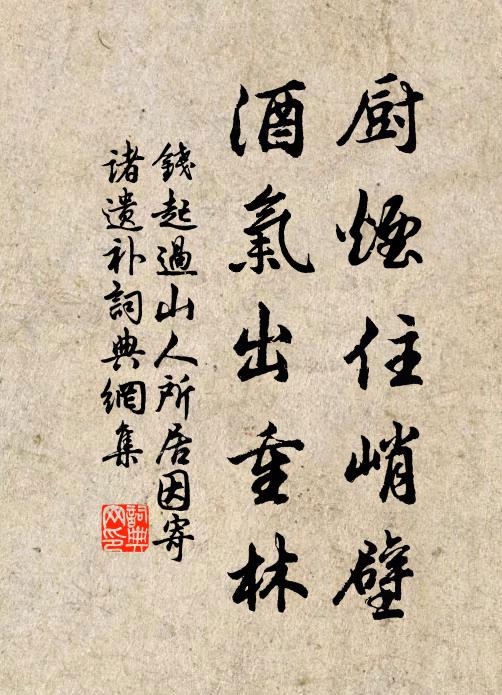 厨煙住峭壁
酒氣出重林
錢起過山人所居因寄
诸遗补詞典網集
詞典網印